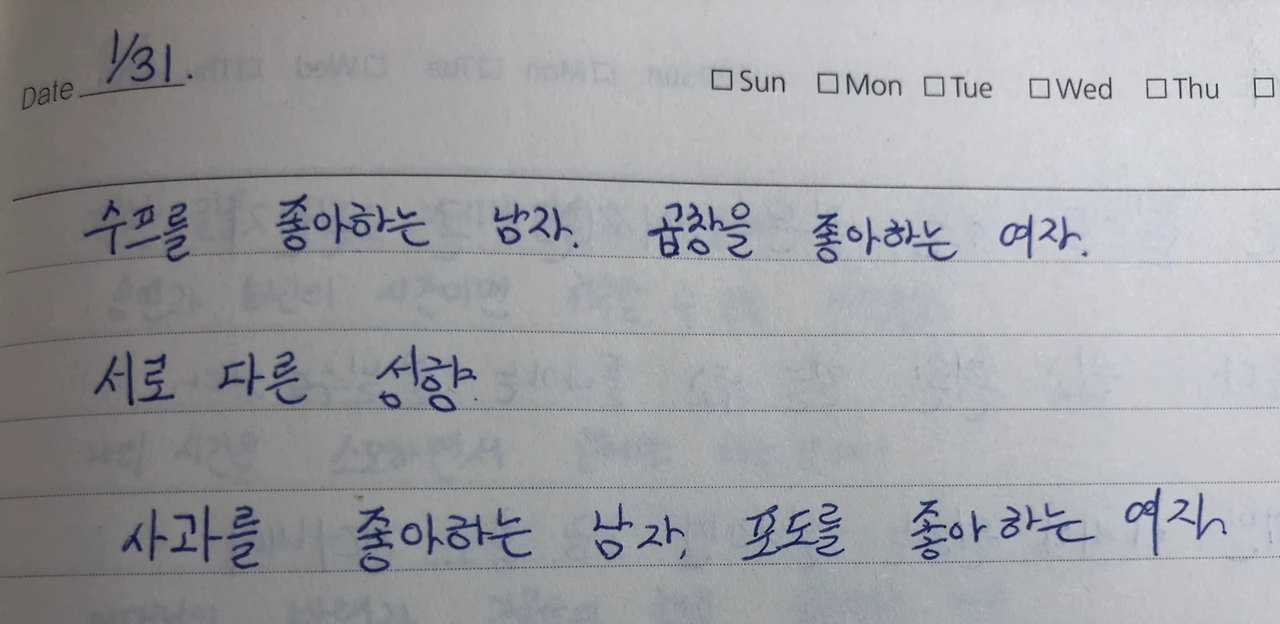 Date 1/31. □Sun □Mon □Tue □Wed □Thu □
수프를 좋아하는 남자. 곱창을 좋아하는 여자.
서로 다른 성향.
사과를 좋아하는 남자. 포도를 좋아하는 여자.